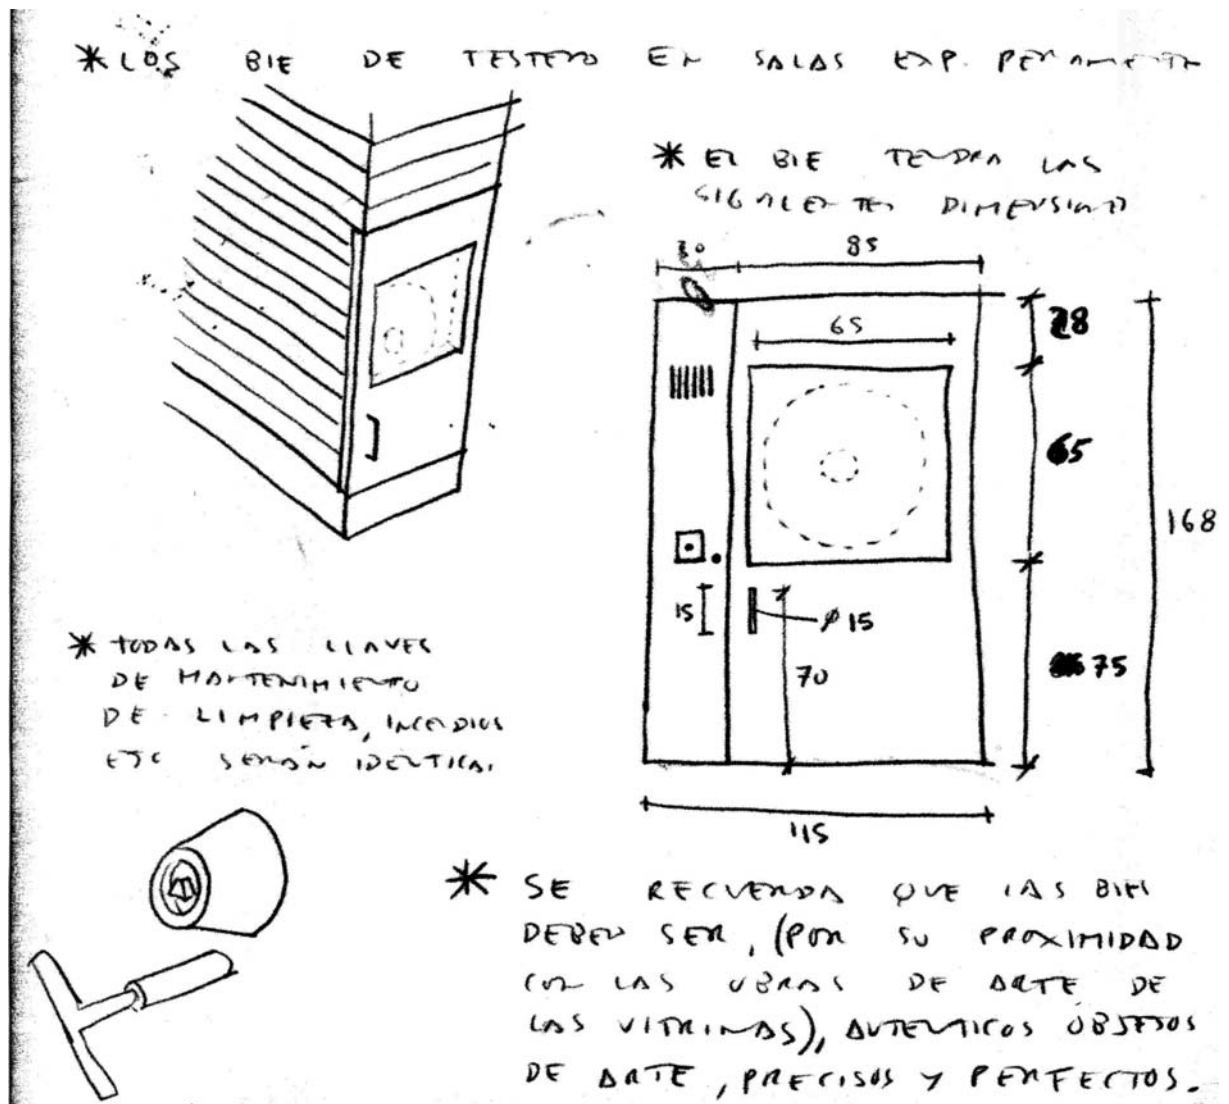 * LOS BIE DE TESTERO EN SALAS EXP. PERMANENTE
* EL BIE TENDRA LAS
SIGUIENTES DIMENSIONES
30 85
65
28
65
168
15
Ø 15
70
75
115
* TODAS LAS LLAVES
DE MANTENIMIENTO
DE LIMPIEZA, INCENDIOS
ETC SERÁN IDENTICAS
* SE RECUERDA QUE LAS BIES
DEBEN SER, (POR SU PROXIMIDAD
CON LAS OBRAS DE ARTE DE
LAS VITRINAS), AUTENTICOS OBJETOS
DE ARTE, PRECISOS Y PERFECTOS.